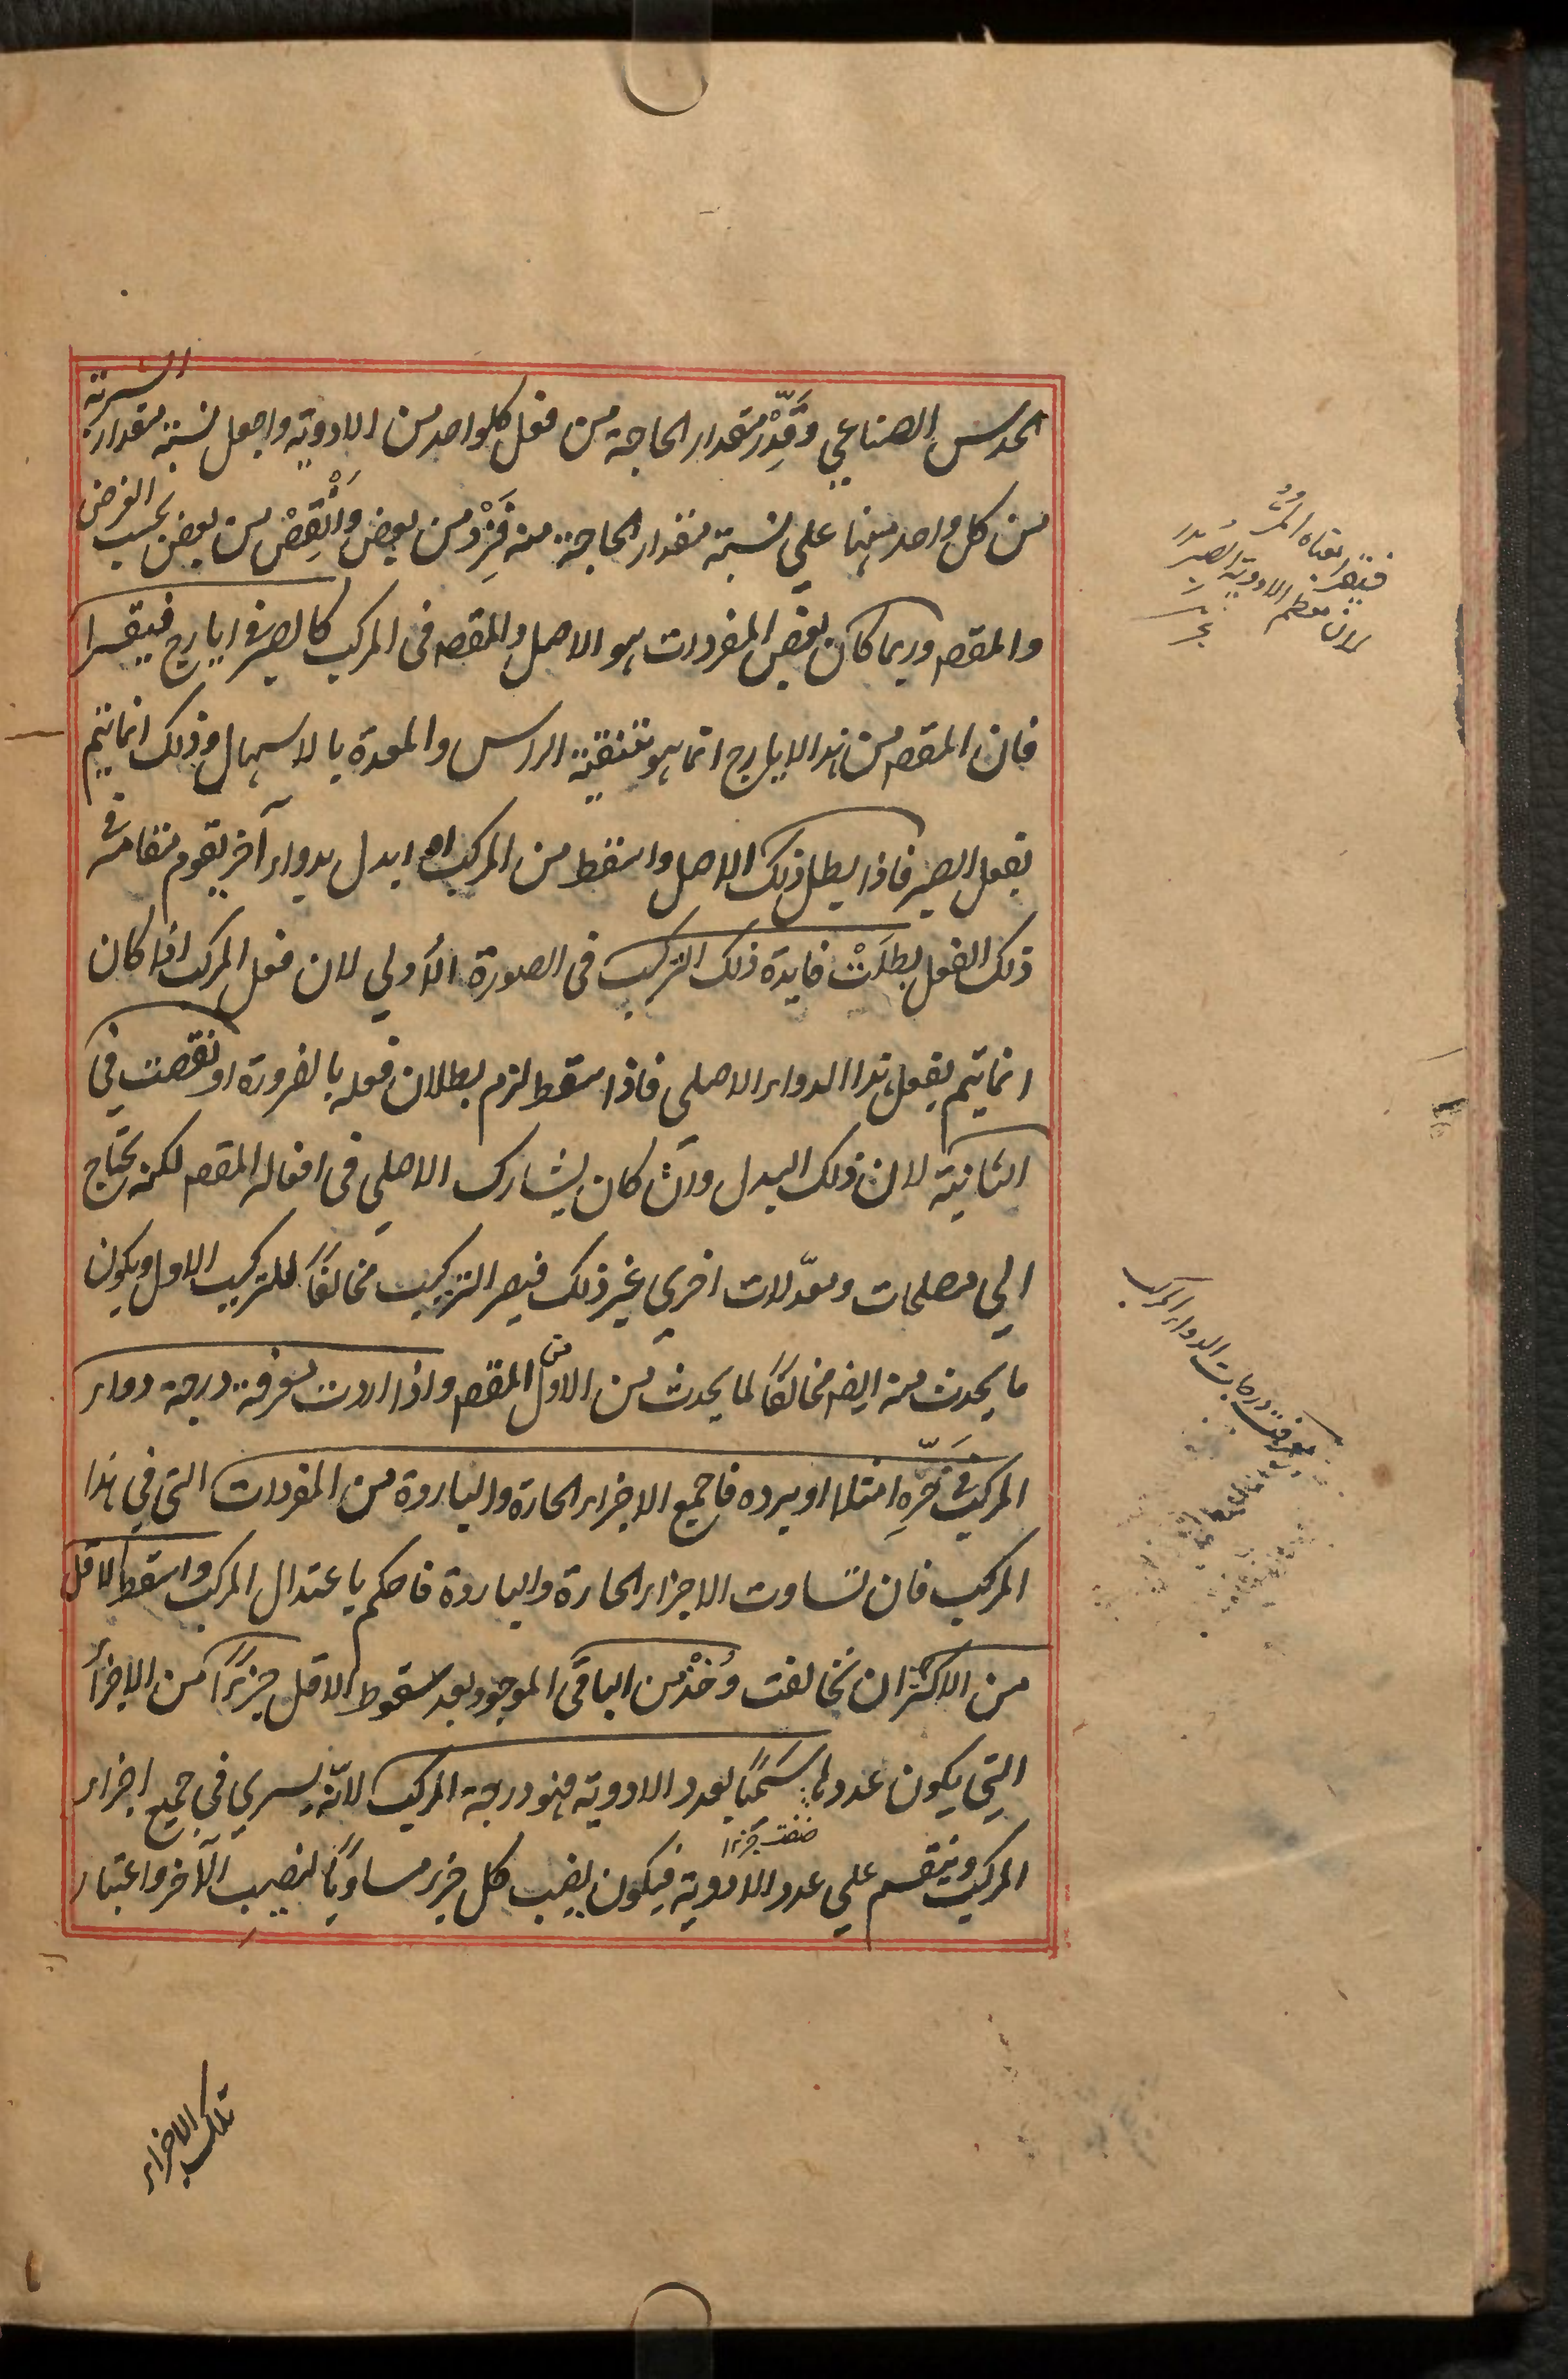 الحدس الصناعي وقَدِّرْ مقدار الحاجة من فعل كلواحد من الادوية واجعل نسبة مقدار الشربة
من كل واحد منهما علي نسبة مقدار الحاجة منه فَزِدْ من بعض وَاَنْقِصْ من بعض بحسب الغرض
والمقصد وربما كان بعض المفردات هو الاصل والمقصد فى المركب كالصبر فى ايارج فيقرا
فان المقصد من هذا الايارج انما هو تنقية الراس والمعدة بالاسهال وذلك انما يتم
بفعل الصبر فاذا بطل ذلك الاصل واسقط من المركب او ابدل بدواء آخر يقوم مقامه فى
ذلك الفعل بطلَتْ فايدة ذلك التركيب فى الصورة الأولي لان فعل المركب اذا كان
انما يتم بفعل هذا الدواء الاصلي فاذا سقط لزم بطلان فعله بالضرورة او نقصت في
الثانية لان ذلك البدل وان كان يشارك الاصلي فى افعاله المقصد لكنه يحتاج
الي مصلحات ومعدّلات اخري غير ذلك فيصر التركيب مخالفًا للتركيب الاول ويكون
ما يحدث منه ايضا مخالفًا لما يحدث من الاول من المقصد واذا اردت معرفة درجة دواء
المركب فى حَرِّهِ امتلا او برده فاجمع الاجزاء الحارة والباردة من المفردات التي في هذا
المركب فان تساوت الاجزاء الحارة والباردة فاحكم باعتدال المركب واسقط الاقل
من الاكثر ان تخالفت وَخُذْ من الباقى الموجود بعد سقوط الاقل جزءًا من الاجزأ
التي يكون عددها سَمِيًّا لعدد الادوية فهو درجة المركب لانّه يسري في جميع اجزاء
المركب وينقسم علي عدد الادوية فيكون نصيب كل جزء مساويًا لنصيب الآخر واعتبار
تلك الاجزاء
فيقرا معناه المرُّ
لان معظم الادوية الصبر
معرفت درجات الدواء المركب